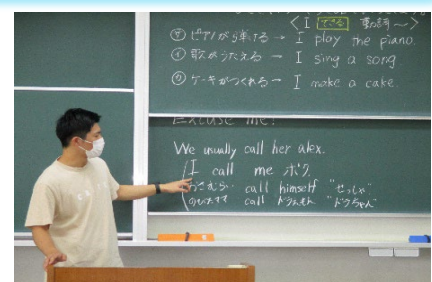 〈 I できる 動詞 ~ 〉
㋐ ピアノが弾ける → I play the piano.
㋑ 歌がうたえる → I sing a song
㋒ ケーキがつくれる → I make a cake.
Excuse me!
We usually call her alex.
I call me ボク
おさむらい call himself "せっしゃ"
のび太 call ドラえもん